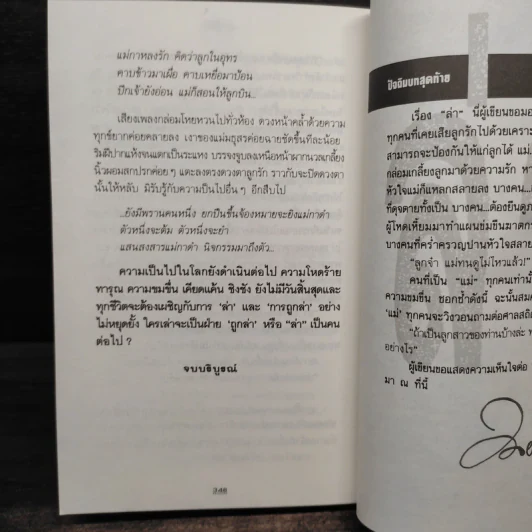 แม่กาหลงรัก คิดว่าลูกในอุทร
คาบข้าวมาเผื่อ คาบเหยื่อมาป้อน
ปีกเจ้ายังอ่อน แม่ก็สอนให้ลูกบิน...
เสียงเพลงกล่อมโหยหวนไปทั่วห้อง ดวงหน้าคล้ำด้วยความ
ทุกข์ยากค่อยคลายลง เงาของแม่มธุสรค่อยฉายชัดขึ้นทีละน้อย
ริมฝีปากแห้งจนแตกเป็นระแหง บรรจงจูบลงเหนือหน้าผากนวลเกลี้ยง
นิ้วผอมสกปรกค่อยๆ แตะลงตรงดวงตาลูกรัก ราวกับจะปิดดวงตา
นั้นให้หลับ มิรับรู้กับความปืนไปอื่นๆ อีกสืบไป
...ยังมีพรานคนหนึ่ง ยกปืนขึ้นจ้องหมายจะยิงแม่กาดำ
ตัวหนึ่งจะต้ม ตัวหนึ่งจะยำ
แสนสงสารแม่กาดำ นิจกรรมมาถึงตัว...
ความเป็นไปในโลกยังดำเนินต่อไป ความโหดร้าย
ทารุณ ความขมขื่น เคียดแค้น ชิงชัง ยังไม่มีวันสิ้นสุดและ
ทุกชีวิตจะต้องเผชิญกับการ 'ล่า' และ 'การถูกล่า' อย่าง
ไม่หยุดยั้ง ใครเล่าจะเป็นฝ่าย 'ถูกล่า' หรือ "ล่า" เป็นคน
ต่อไป ?
จบบริบูรณ์
246
ปัจฉิมบทสุดท้าย
เรื่อง "ล่า" นี้ผู้เขียนขอมอ
ทุกคนที่เคยเสียลูกรักไปด้วยเคราะ
สามารถจะป้องกันให้แก่ลูกได้ แม่
กล่อมเกลี้ยงลูกมาด้วยความรัก ทา
หัวใจแม่ก็แหลกสลายลง บางคน...
ที่ดุจตายทั้งเป็น บางคน...ต้องยืนดูภ
ผู้โหดเหี้ยมมาทำแผนข่มขืนฆาตกร
บางคนที่คร่ำครวญปานหัวใจสลาย
"ลูกจ๋า แม่ทนดูไม่ไหวแล้ว!"
คนที่เป็น "แม่" ทุกคนเท่านั้
ความขมขื่น ชอกช้ำดังนี้ ฉะนั้นสม
'แม่' ทุกคนจะวิงวอนถามต่อศาลสถิต
"ถ้าเป็นลูกสาวของท่านบ้างล่ะ ท
อย่างไร"
ผู้เขียนขอแสดงความเห็นใจต่อ
มา ณ ที่นี้